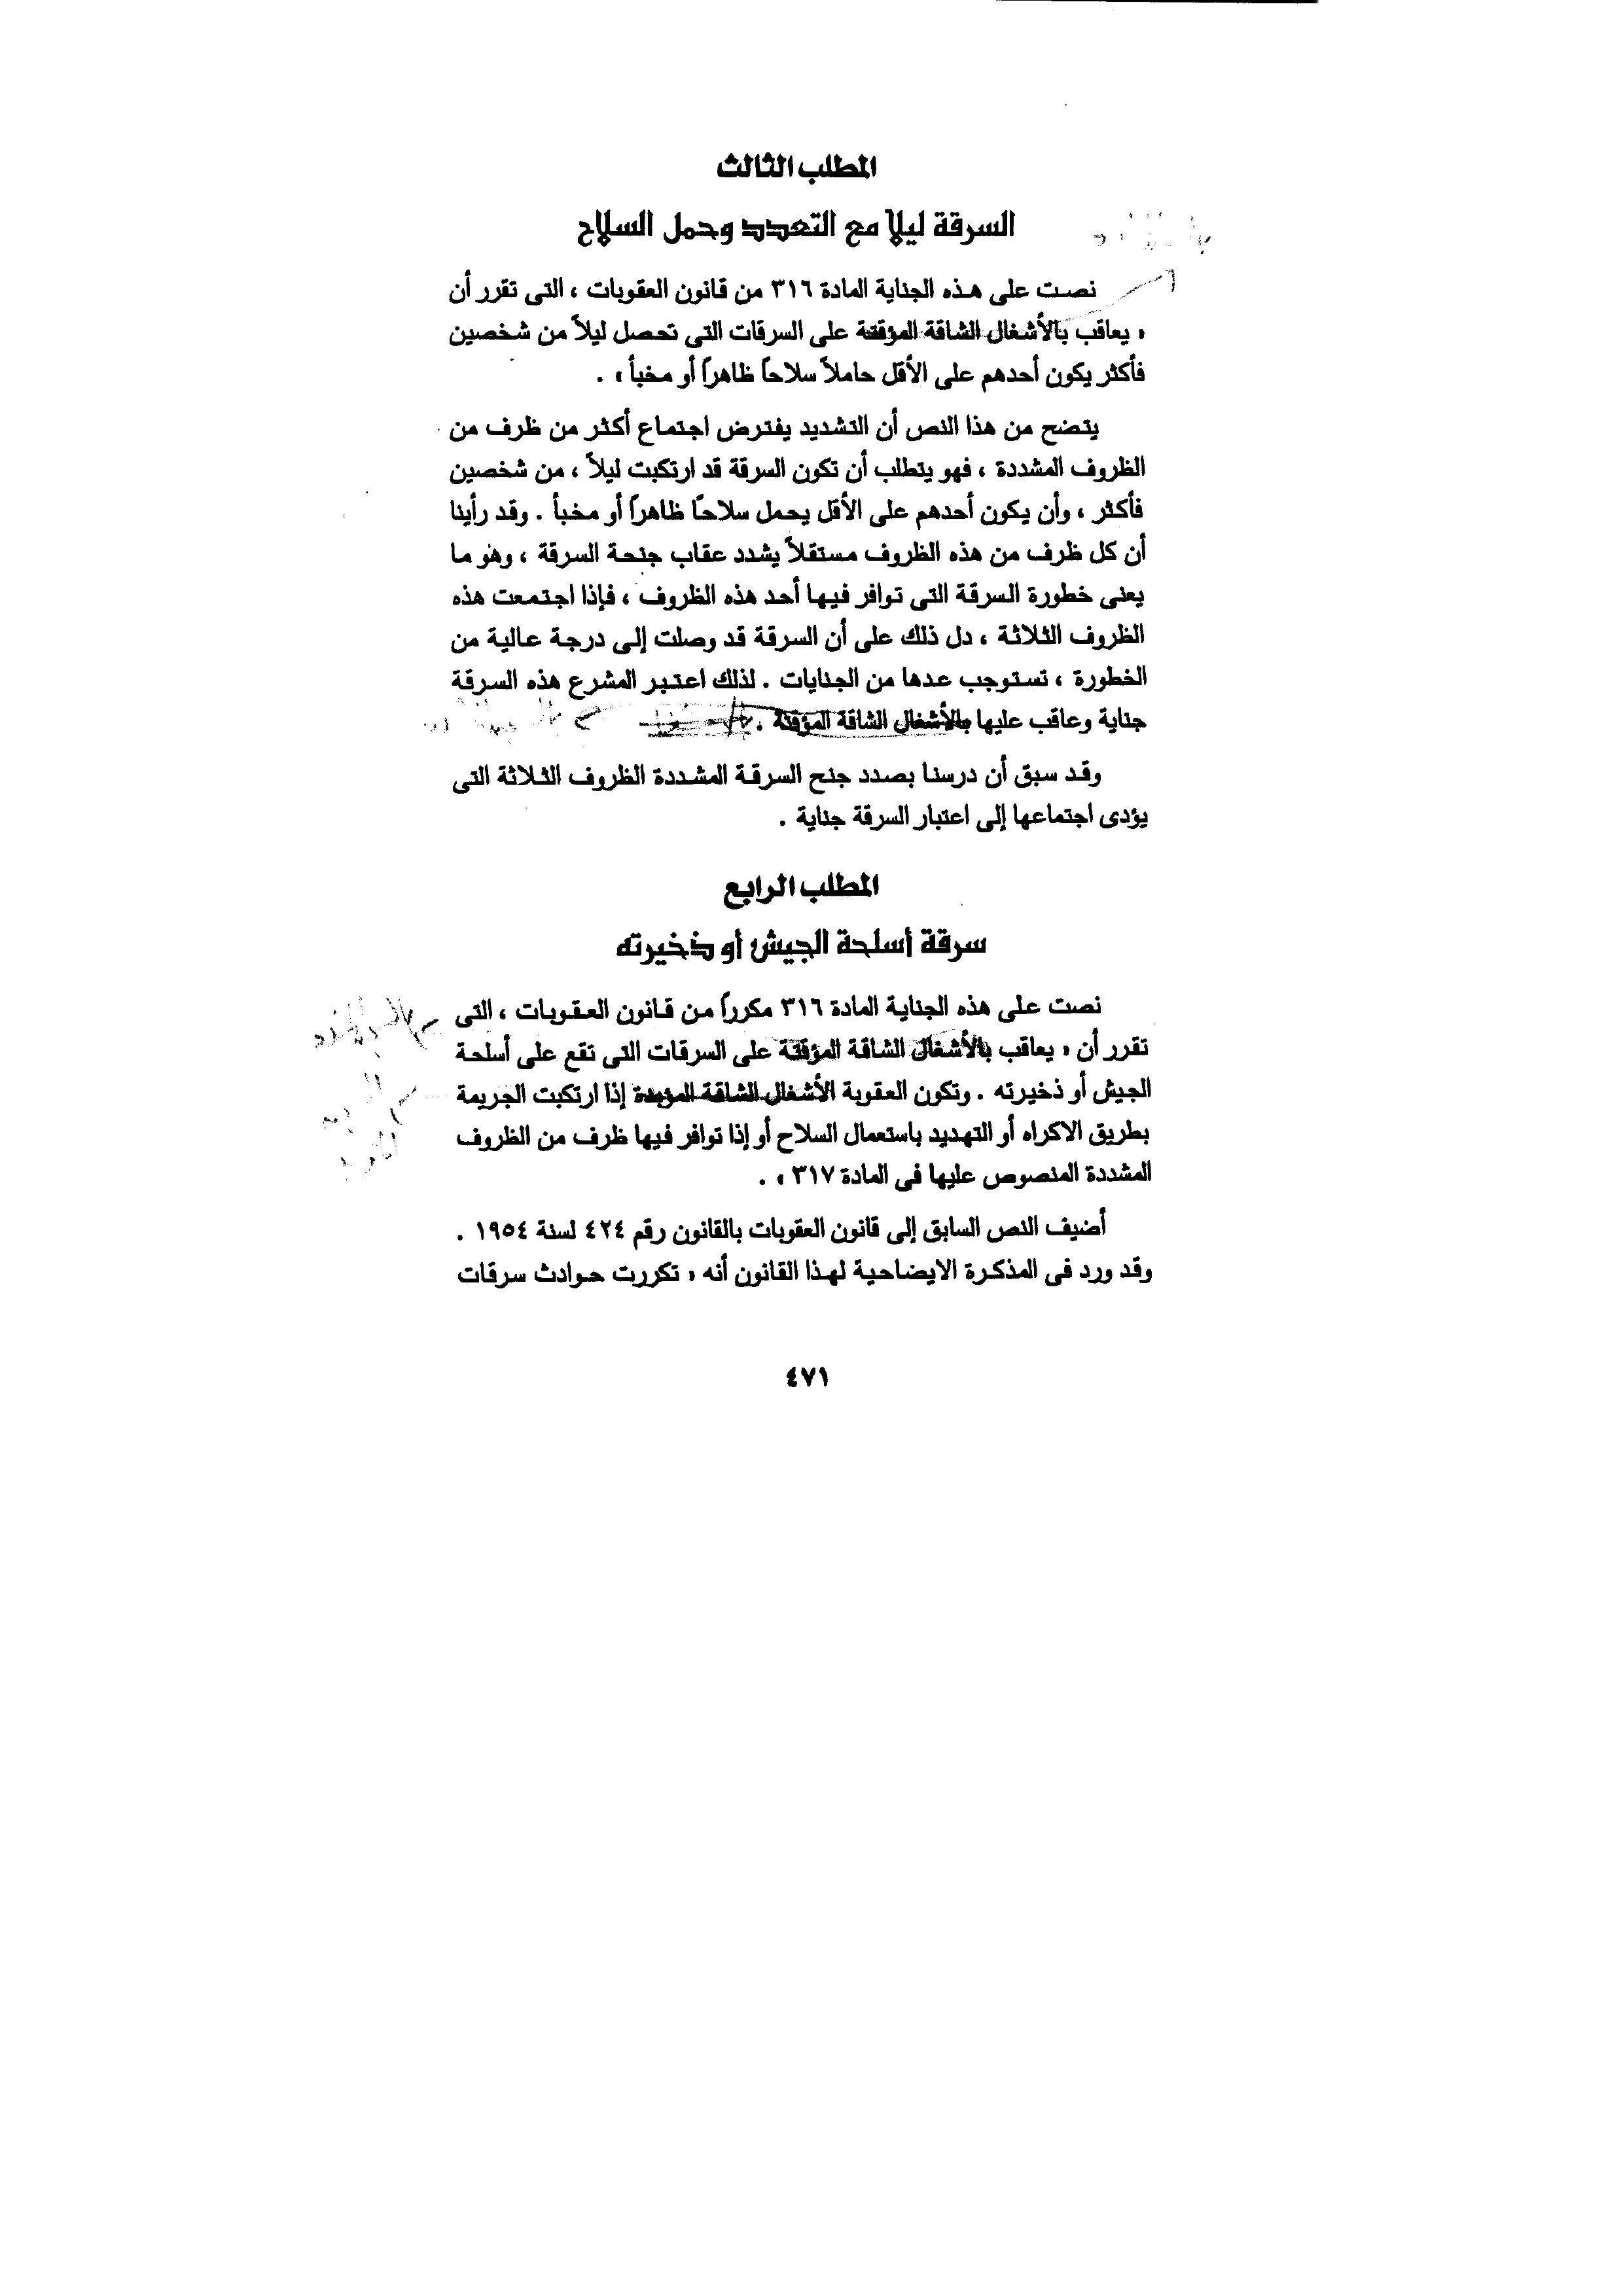 المطلب الثالث
السرقة ليلاً مع التعدد وحمل السلاح
نصت على هذه الجناية المادة ٣١٦ من قانون العقوبات ، التى تقرر أن
« يعاقب بالأشغال الشاقة المؤقتة على السرقات التى تحصل ليلاً من شخصين
فأكثر يكون أحدهم على الأقل حاملاً سلاحاً ظاهراً أو مخبأ » .
يتضح من هذا النص أن التشديد يفترض اجتماع أكثر من ظرف من
الظروف المشددة ، فهو يتطلب أن تكون السرقة قد ارتكبت ليلاً ، من شخصين
فأكثر ، وأن يكون أحدهم على الأقل يحمل سلاحاً ظاهراً أو مخبأ . وقد رأينا
أن كل ظرف من هذه الظروف مستقلاً يشدد عقاب جنحة السرقة ، وهو ما
يعنى خطورة السرقة التى توافر فيها أحد هذه الظروف ، فإذا اجتمعت هذه
الظروف الثلاثة ، دل ذلك على أن السرقة قد وصلت إلى درجة عالية من
الخطورة ، تستوجب عدها من الجنايات . لذلك اعتبر المشرع هذه السرقة
جناية وعاقب عليها بالأشغال الشاقة المؤقتة .
وقد سبق أن درسنا بصدد جنح السرقة المشددة الظروف الثلاثة التى
يؤدى اجتماعها إلى اعتبار السرقة جناية .
المطلب الرابع
سرقة أسلحة الجيش أو ذخيرته
نصت على هذه الجناية المادة ٣١٦ مكرراً من قانون العقوبات ، التى
تقرر أن « يعاقب بالأشغال الشاقة المؤقتة على السرقات التى تقع على أسلحة
الجيش أو ذخيرته . وتكون العقوبة الأشغال الشاقة المؤبدة إذا ارتكبت الجريمة
بطريق الاكراه أو التهديد باستعمال السلاح أو إذا توافر فيها ظرف من الظروف
المشددة المنصوص عليها فى المادة ٣١٧ » .
أضيف النص السابق إلى قانون العقوبات بالقانون رقم ٤٢٤ لسنة ١٩٥٤ .
وقد ورد فى المذكرة الايضاحية لهذا القانون أنه « تكررت حوادث سرقات
٤٧١